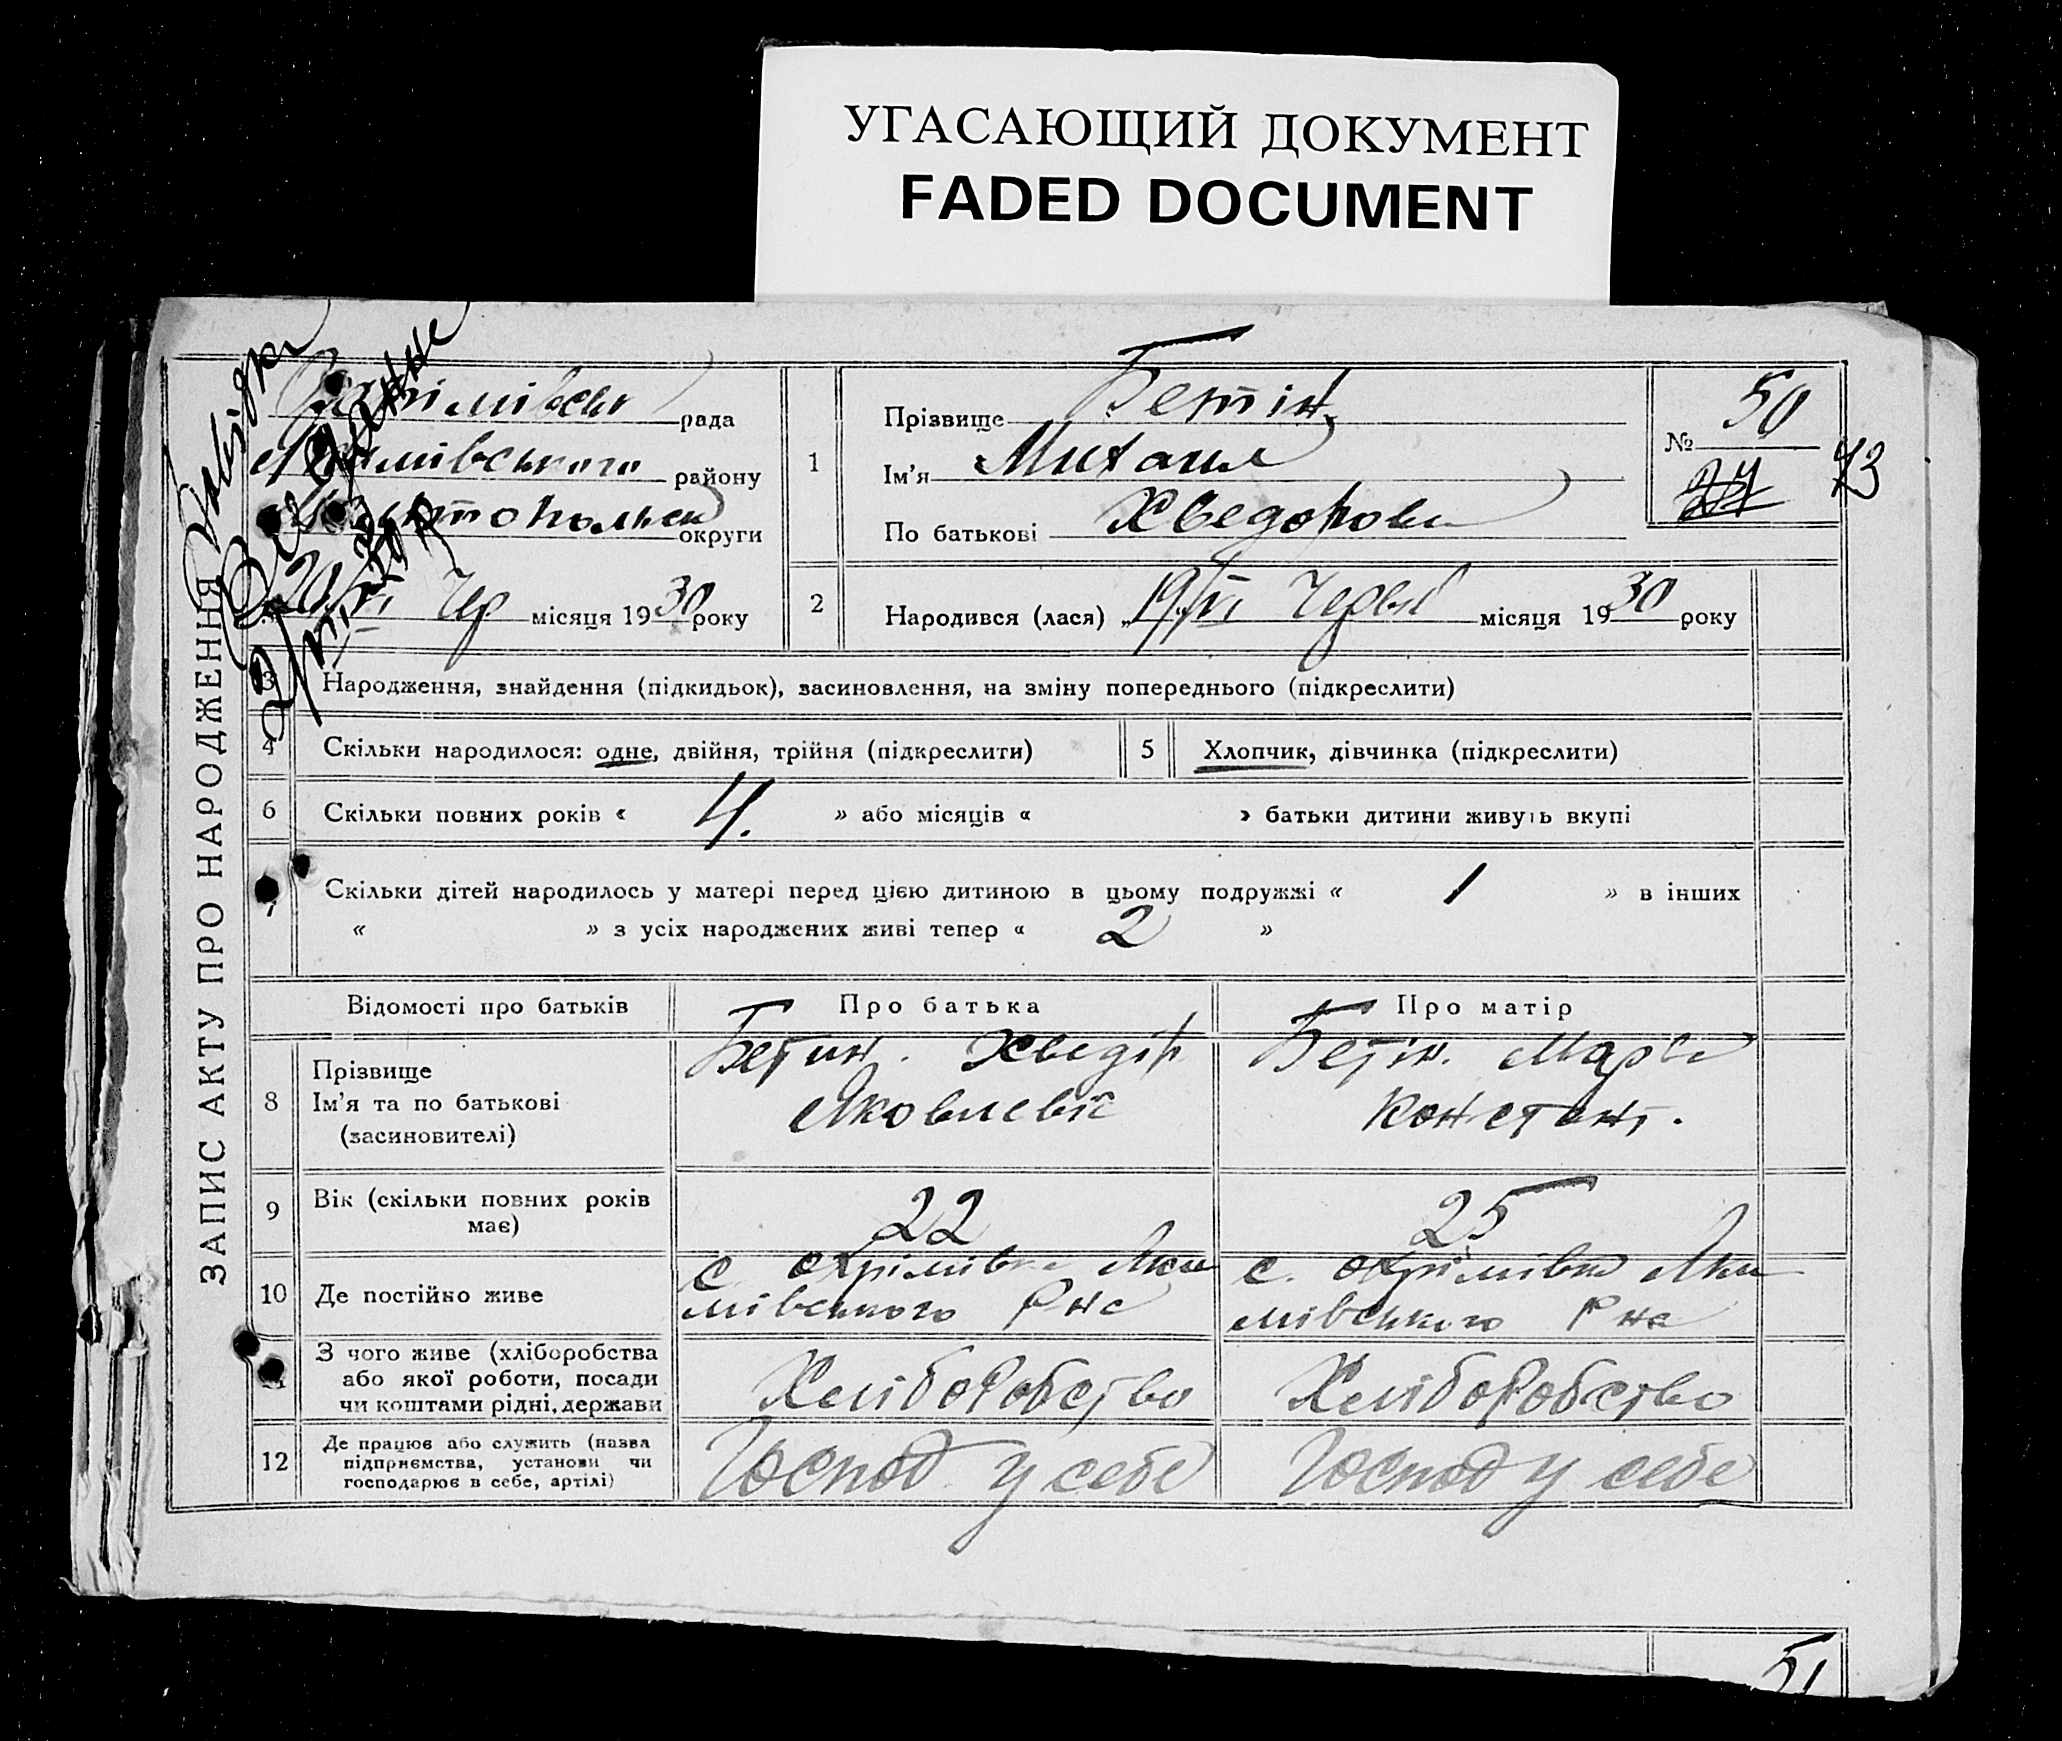 УГАСАЮЩИЙ ДОКУМЕНТ
FADED DOCUMENT
ЗАПИС АКТУ ПРО НАРОДЖЕННЯ
рада
Якимівського району
округи
20/VI Чер місяця 1930 року
1
Прізвище Бетін
Ім'я Михаил
По батькові Хведорови
№ 50
73
2
Народився (лася) „19/VI Червн місяця 1930 року
3 Народження, знайдення (підкидьок), засиновлення, на зміну попереднього (підкреслити)
4 Скільки народилося: одне, двійня, трійня (підкреслити)
5 Хлопчик, дівчинка (підкреслити)
6 Скільки повних років « 4. » або місяців « » батьки дитини живуть вкупі
7 Скільки дітей народилось у матері перед цією дитиною в цьому подружжі « 1 » в інших
« » з усіх народжених живі тепер « 2 »
Відомості про батьків
Про батька
Про матір
8
Прізвище
Ім'я та по батькові
(засиновителі)
Бетин. Хведір
Яковлевіч
Бетін. Марія
Констант.
9
Вік (скільки повних років
має)
22
25
10 Де постійно живе
с. Охрімівка Яки
мівського Рна
с. Охрімівка Яки
мівського Рна
З чого живе (хліборобства
або якої роботи, посади
чи коштами рідні, держави
Хліборобство
Хліборобство
12
Де працює або служить (назва
підприємства, установи чи
господарює в себе, артілі)
Господ у себе
Господ у себе
51